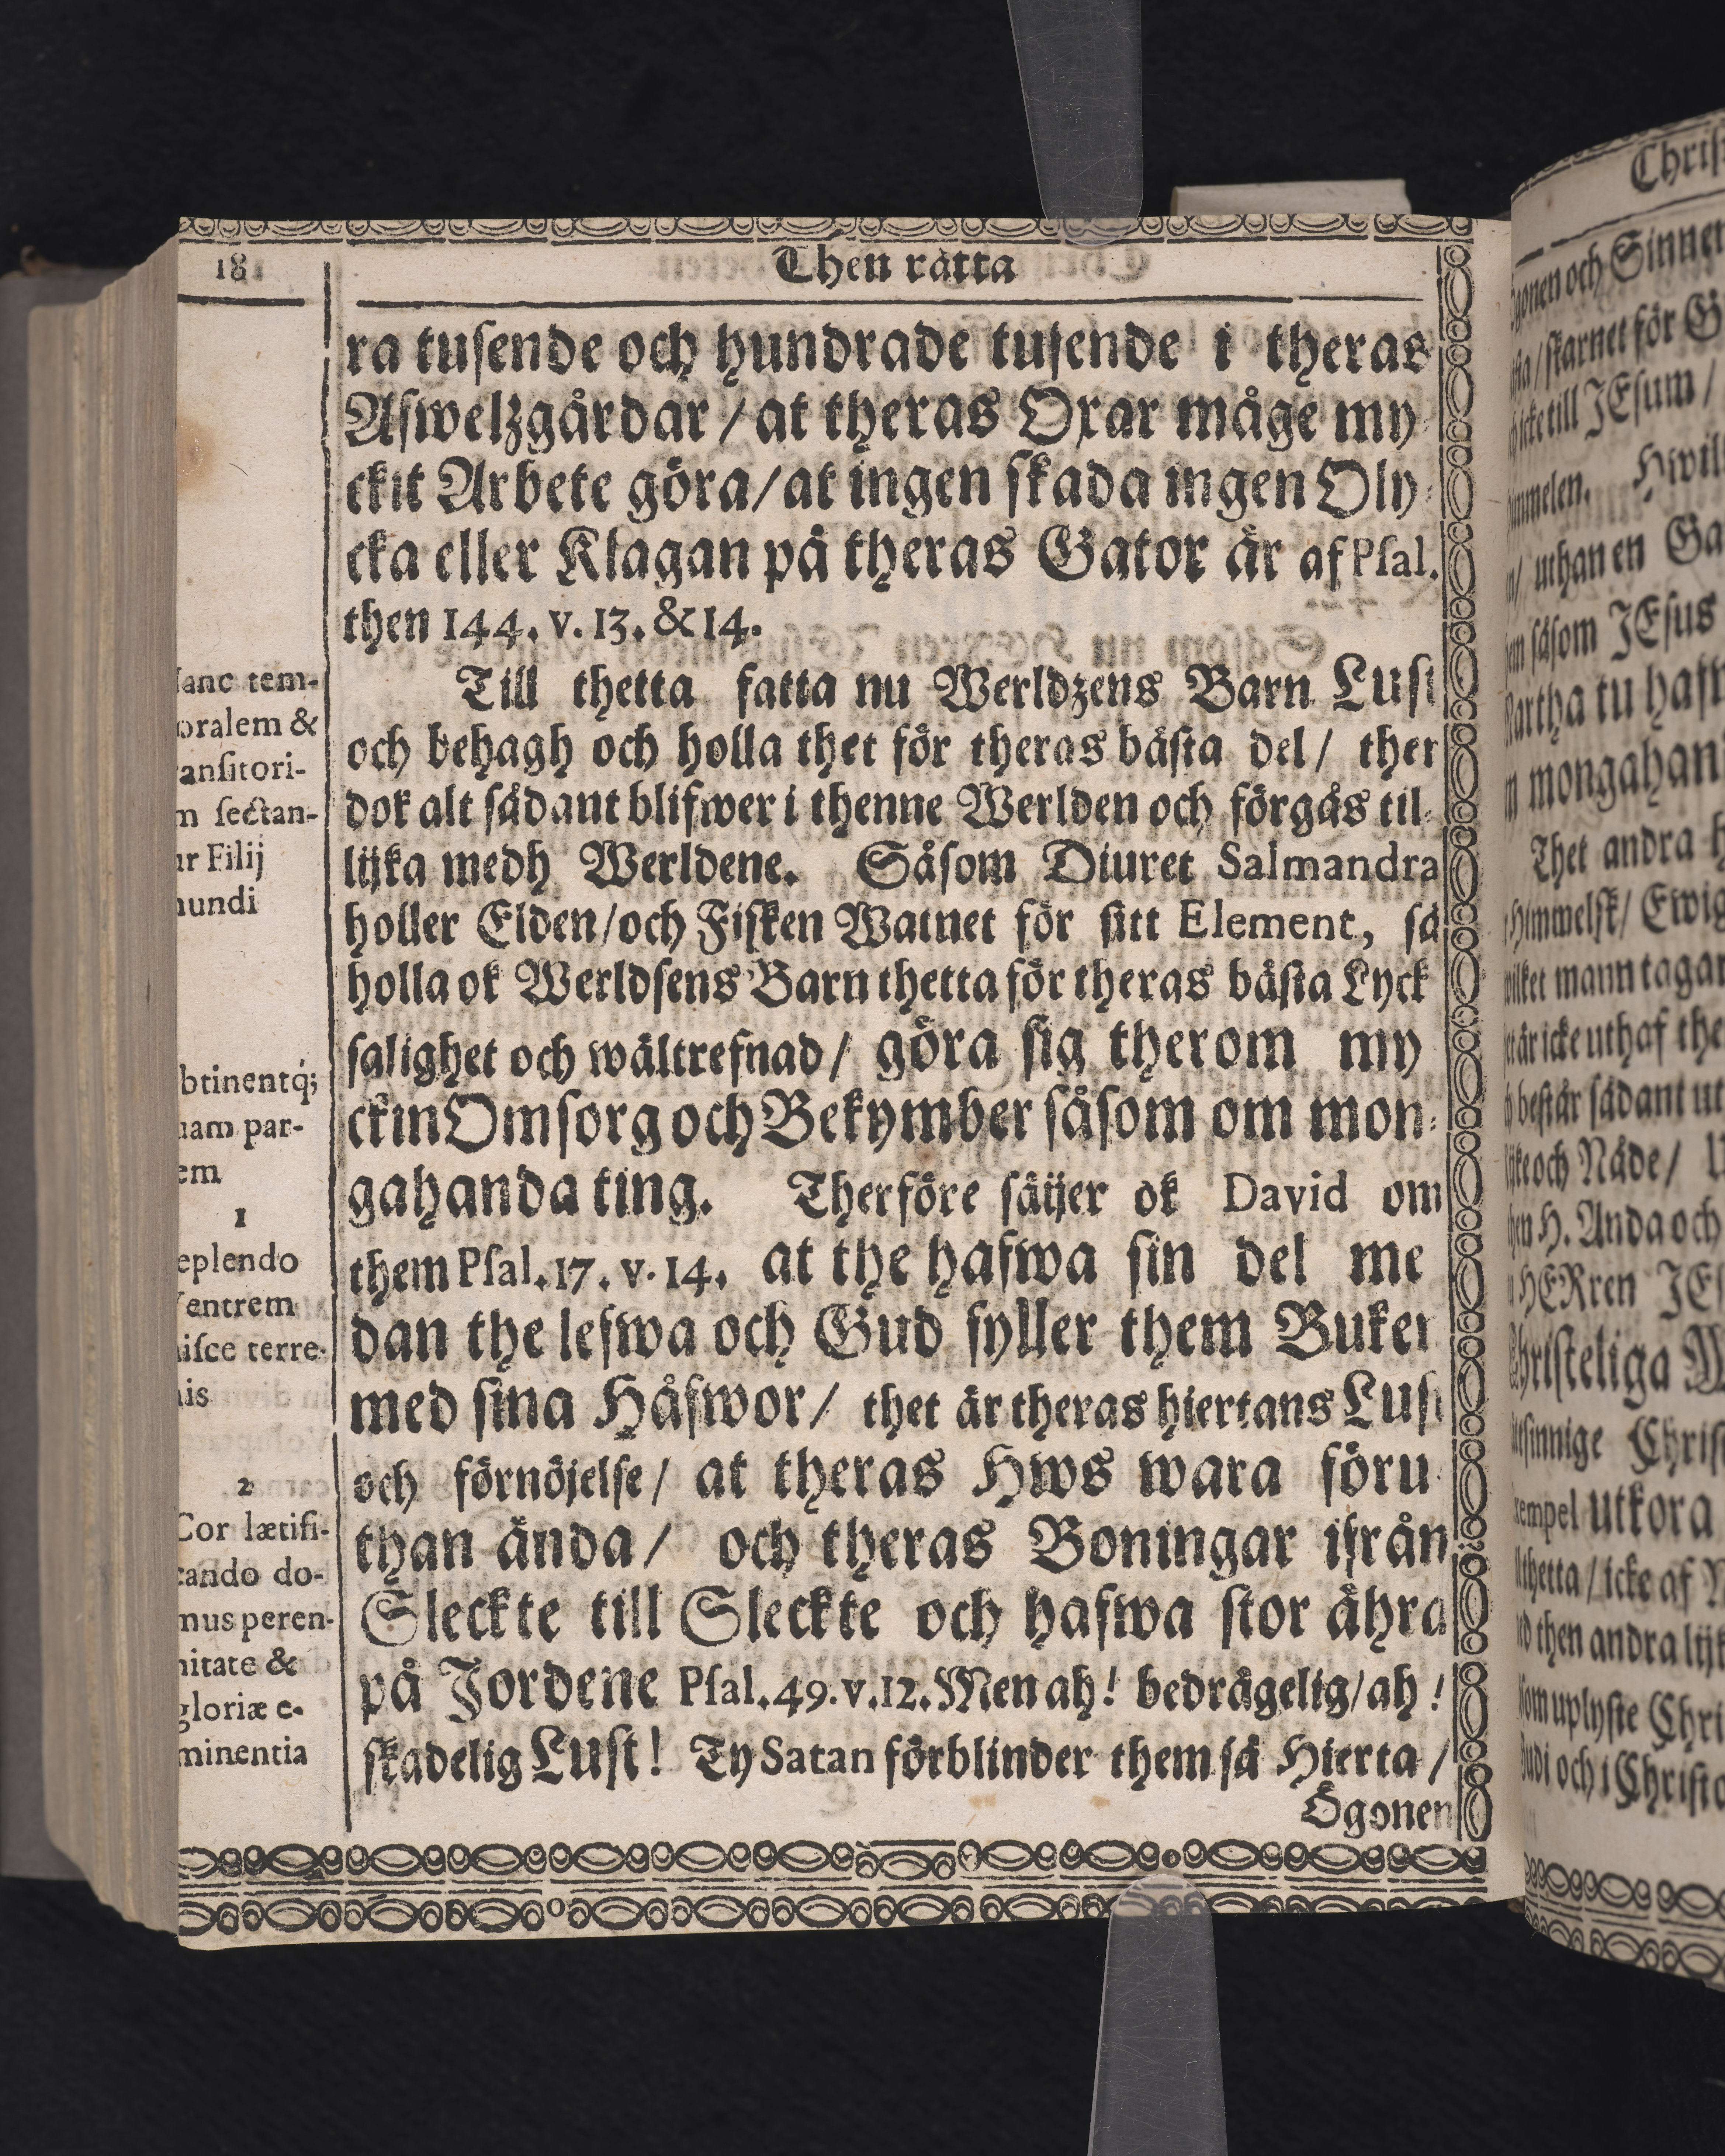 18
Then rätta
ra tusende och hundrade tusende i theras
Afwelzgårdar / at theras Oxar måge my
ckit Arbete göra/at ingen skada ingen Oly-
cka eller Klagan på theras Gator är af Psal.
then 144. v. 13. & 14.
Till thetta fatta nu Werldzens Barn Lust
och behagh och holla thet för theras bästa del/ ther
dok alt sådant blifwer i thenne Werlden och förgås til-
lijka medh Werldene. Såsom Diuret Salmandra
holler Elden/och Fisken Watnet för sitt Element, så
holla ok Werldsens Barn thetta för theras bästa Lyck
salighet och wältrefnad/ göra sig therom my
ckin Omsorg och Bekymber såsom om mon-
gahanda ting. Therföre säijer ok David om
them Psal. 17. v. 14. at the hafwa sin del me
dan the lefwa och Gud fyller them Buken
med sina Håfwor/ thet är theras hiertans Lust
och förnöjelse/ at theras Hws wara föru
than ända/ och theras Boningar ifrån
Sleckte till Sleckte och hafwa stor ähra
på Jordene Psal. 49. v. 12. Men ah! bedrägelig/ah!
skadelig Lust! Ty Satan förblinder them så Hierta /
Ögonen
anc tem-
oralem &
ansitori-
m sectan-
ur Filij
mundi
btinentq́;
nam par-
em
1
eplendo
entrem
hisce terre-
nis
2
Cor lætifi-
cando do-
mus peren-
nitate &
gloriæ e-
minentia
Ögonen och Sinnen
till JEsum /
Hwil
uthan en Ga
såsom JEsus
artha tu hafw
mongahan
Thet andra h
Himmelsk/ Ewig
mann tagar
är icke uthaf the
består sådant ut
och Nåde/
H. Anda och
HERren JEs
hristeliga
sinnige Christ
empel utkora
thetta / icke af
then andra lijk
som uplyste Chri
och i Christo